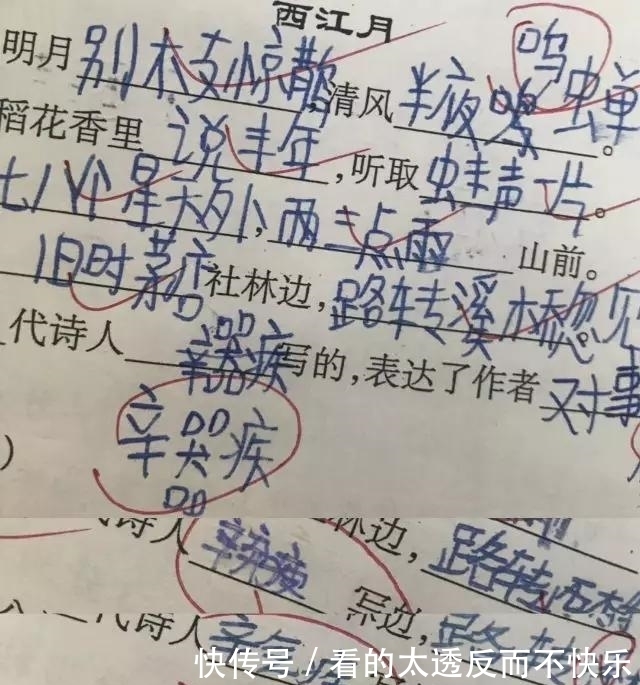 西江月
鸣
明月别木支惊散,清风半夜鸣虫单。
稻花香里说丰年,听取虫丰声一片。
七八个星天外,两三点雨山前。
旧时茅店社林边,路转溪木桥忽见
代诗人辛器疾写的,表达了作者对事
辛器疾
)
代诗人辛弃疾 林边,路转
代诗人 写边,路
快传号/看的太透反而不快乐